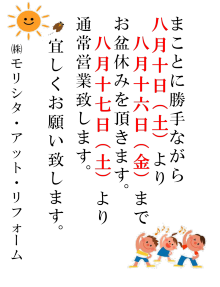 まことに勝手ながら
八月十日（土）より
八月十六日（金）まで
お盆休みを頂きます。
八月十七日（土）より
通常営業致します。
宜しくお願い致します。
㈱モリシタ・アット・リフォーム